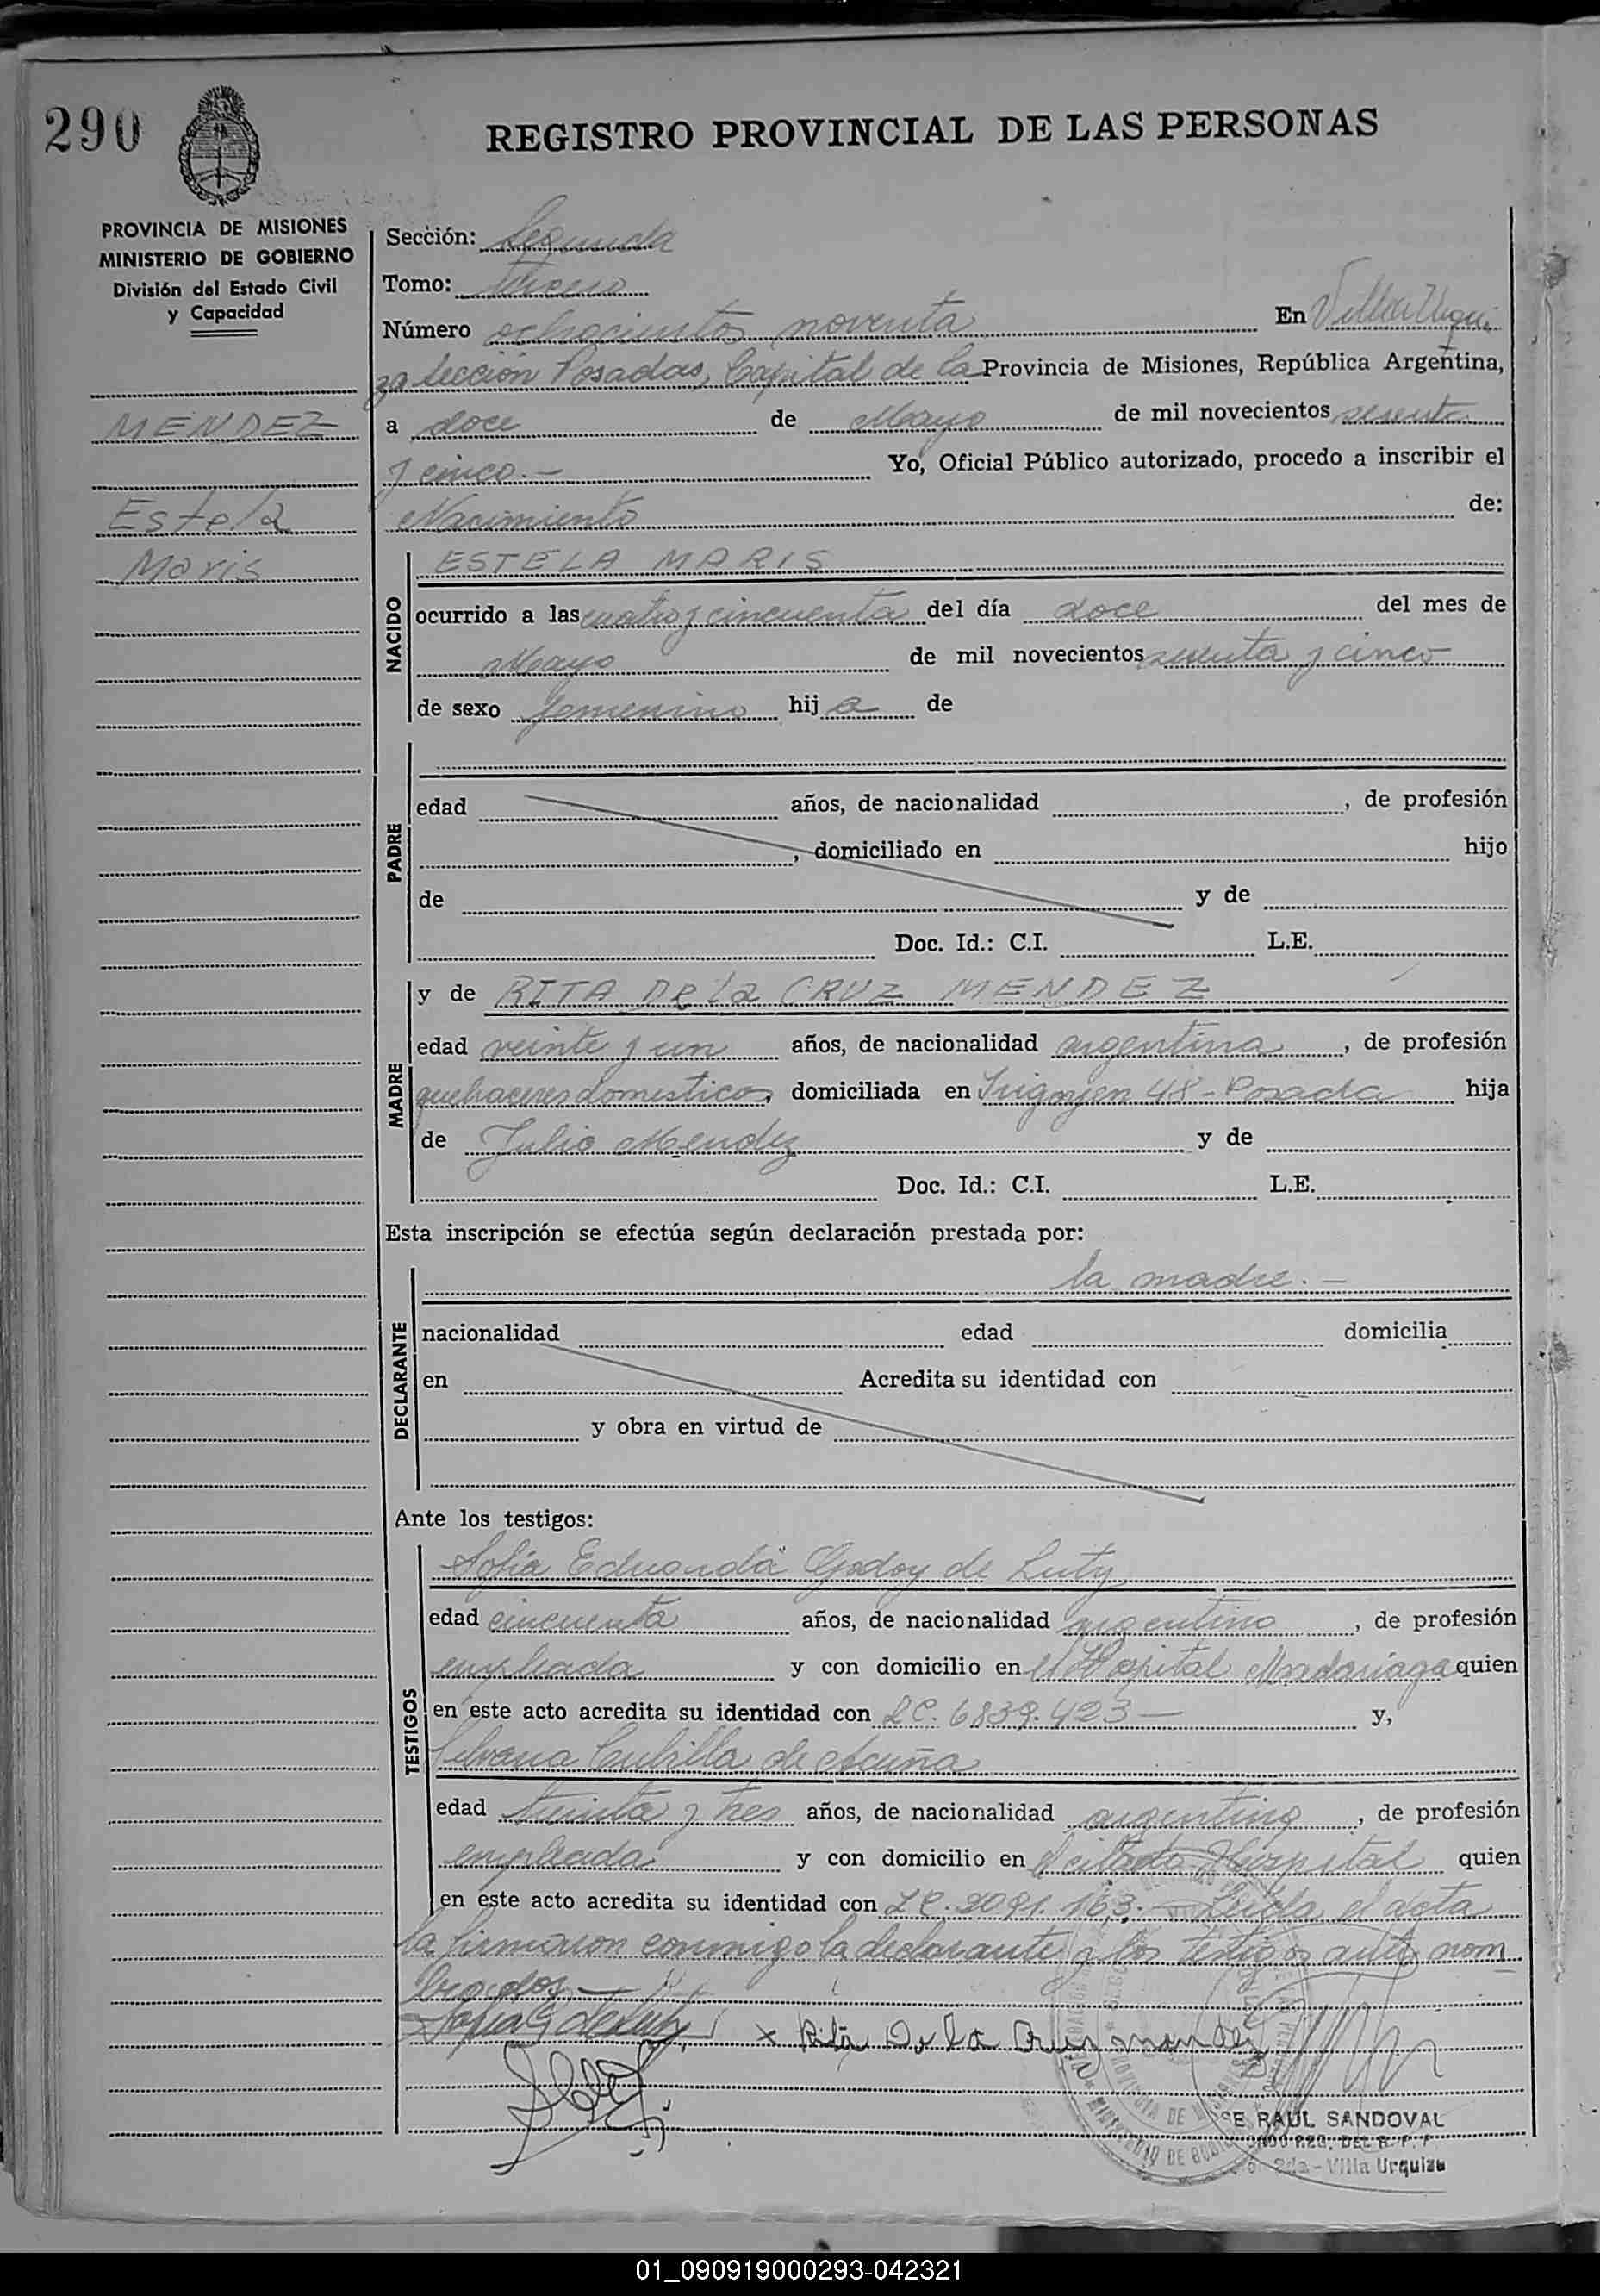 290
REGISTRO PROVINCIAL DE LAS PERSONAS
PROVINCIA DE MISIONES
MINISTERIO DE GOBIERNO
División del Estado Civil
y Capacidad
MENDEZ
Estela
Maris
Sección: Segunda
Tomo: tercero
Número ochocientos noventa En Villa Urqui
za sección Posadas, Capital de la Provincia de Misiones, República Argentina,
a doce de Mayo de mil novecientos sesenta
y cinco.- Yo, Oficial Público autorizado, procedo a inscribir el
Nacimiento de:
NACIDO
ESTELA MARIS
ocurrido a las cuatro y cincuenta del día doce del mes de
Mayo de mil novecientos sesenta y cinco
de sexo femenino hij a de
PADRE
edad años, de nacionalidad , de profesión
, domiciliado en hijo
de y de
Doc. Id.: C.I. L.E.
MADRE
y de RITA DE la CRUZ MENDEZ
edad veinte y un años, de nacionalidad argentina , de profesión
quehaceres domesticos, domiciliada en Irigoyen 48 - Posada hija
de Julio Mendez y de
Doc. Id.: C.I. L.E.
Esta inscripción se efectúa según declaración prestada por:
DECLARANTE
la madre.-
nacionalidad edad domicilia
en Acredita su identidad con
y obra en virtud de
Ante los testigos:
TESTIGOS
Sofia Eduarda Godoy de Luty
edad cincuenta años, de nacionalidad argentino , de profesión
empleada y con domicilio en el Hospital Madariaga quien
en este acto acredita su identidad con LC. 6839.423- y,
Silvana Cubilla de Acuña
edad treinta y tres años, de nacionalidad argentino , de profesión
empleada y con domicilio en el citado Hospital quien
en este acto acredita su identidad con LC. 2091.163.- Leida el acta
la firmaron conmigo la declarante y los testigos ante nom
brados.-
Sofia G de Luty x Rita De la Crus mendez
SE RAUL SANDOVAL
DEL R. P. P.
2da - Villa Urquiza
01_090919000293-042321